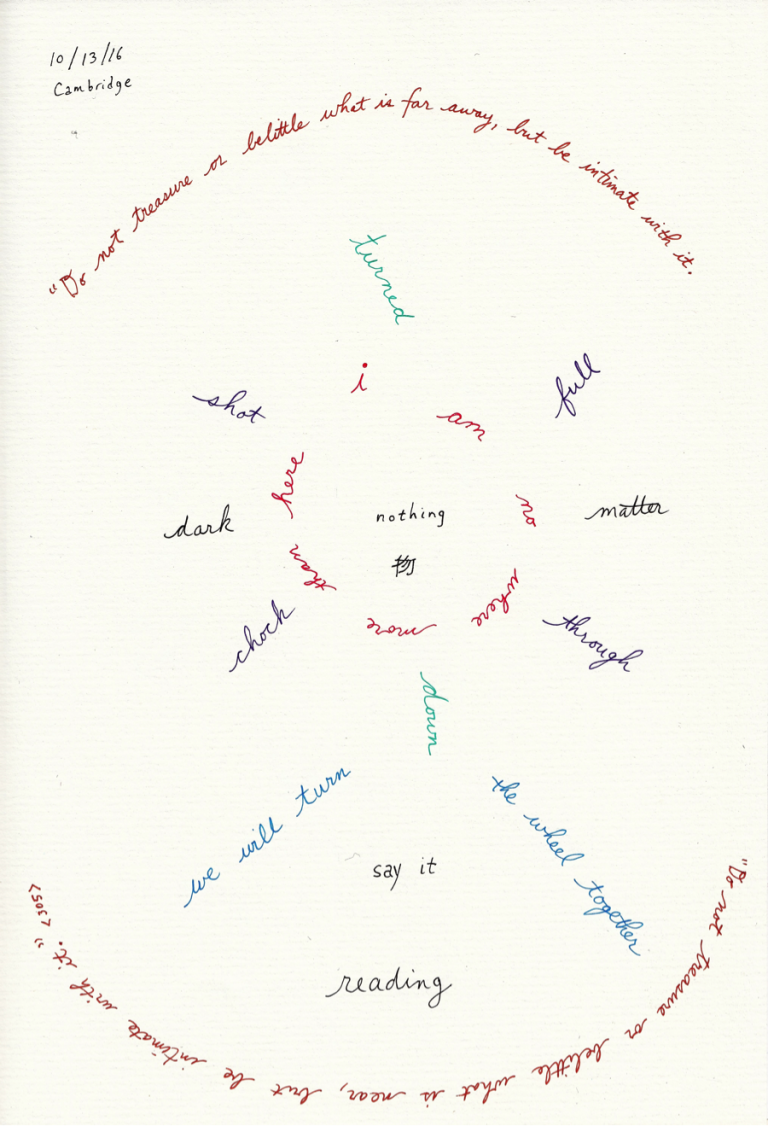 10/13/16
Cambridge
"Do not treasure or belittle what is far away, but be intimate with it.
turned
i am no where more than here
shot
full
dark
nothing
matter
物
chock
through
down
we will turn
the wheel together
say it
reading
"Do not treasure or belittle what is near, but be intimate with it."